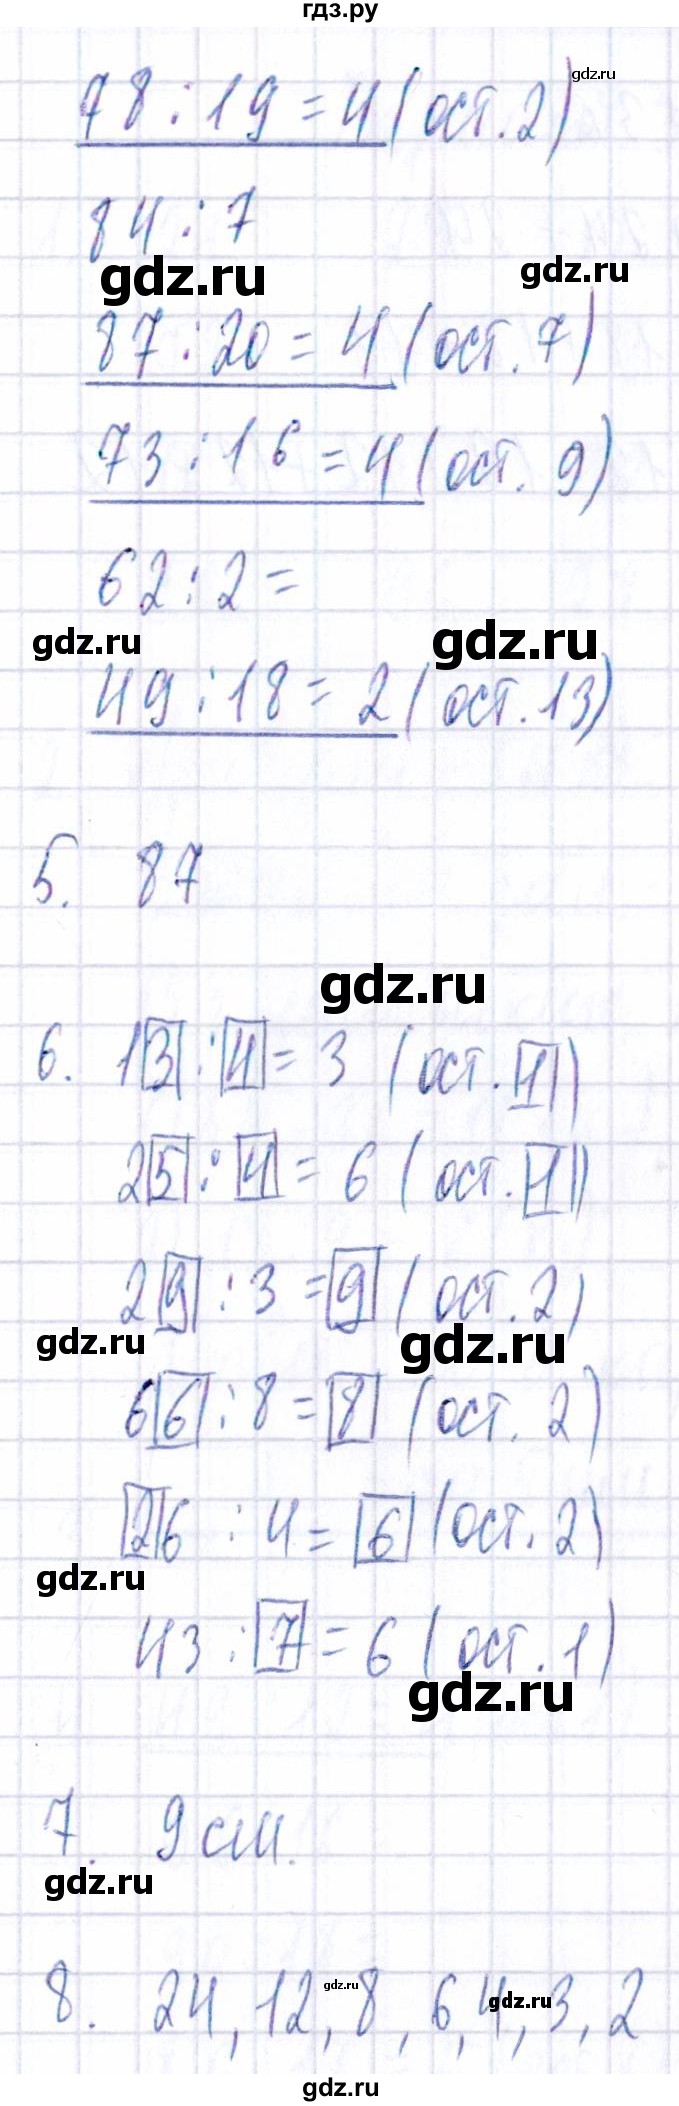 гдз.ру
gdz.ru
78 : 19 = 4 (ост. 2)
84 : 7
gdz.ru
gdz.ru
87 : 20 = 4 (ост. 7)
73 : 16 = 4 (ост. 9)
62 : 2 =
gdz.ru
gdz.ru
49 : 18 = 2 (ост. 13)
5. 87
gdz.ru
6. 13 : 4 = 3 (ост. 1)
25 : 4 = 6 (ост. 1)
29 : 3 = 9 (ост. 2)
gdz.ru
gdz.ru
66 : 8 = 8 (ост. 2)
26 : 4 = 6 (ост. 2)
gdz.ru
43 : 7 = 6 (ост. 1)
gdz.ru
7. 9 см.
gdz.ru
gdz.ru
gdz.ru
8. 24, 12, 8, 6, 4, 3, 2
gdz.ru